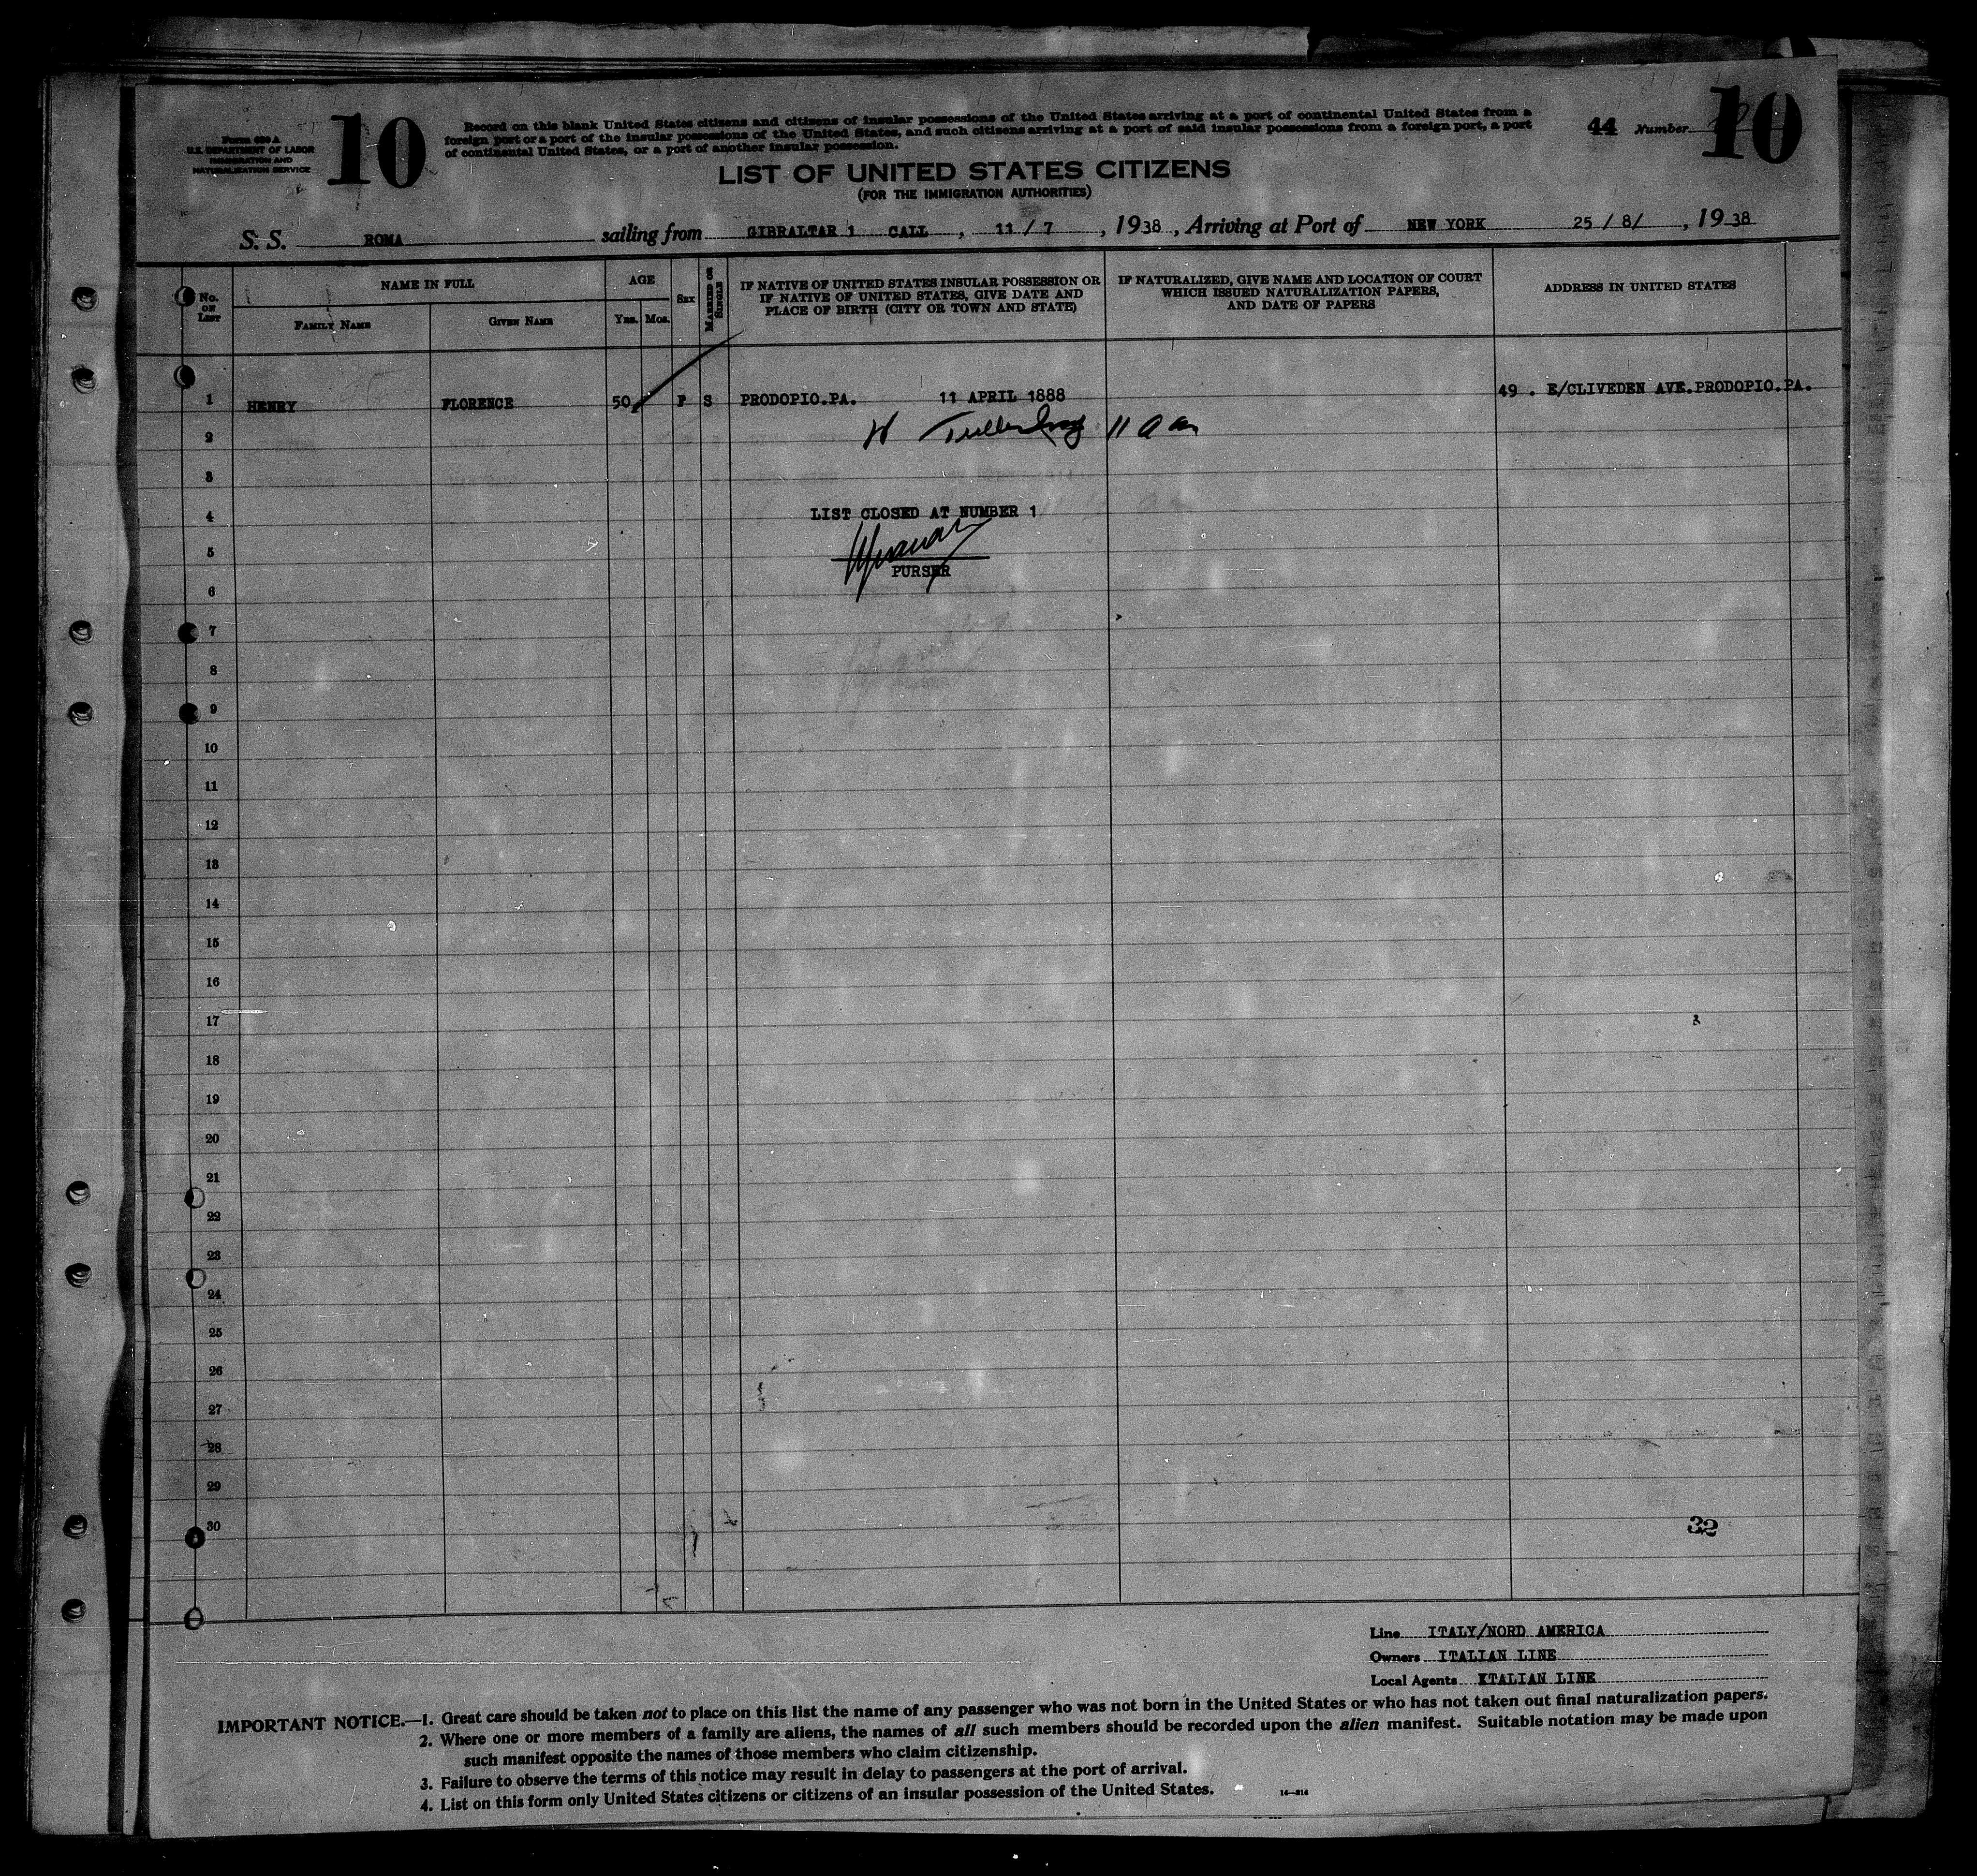 Form 630 A
U.S. DEPARTMENT OF LABOR
IMMIGRATION AND
NATURALIZATION SERVICE
10
Record on this blank United States citizens and citizens of insular possessions of the United States arriving at a port of continental United States from a
foreign port or a port of the insular possessions of the United States, and such citizens arriving at a port of said insular possessions from a foreign port, a port
of continental United States, or a port of another insular possession.
44 Number 10
LIST OF UNITED STATES CITIZENS
(FOR THE IMMIGRATION AUTHORITIES)
S. S. ROMA sailing from GIBRALTAR 1 CALL, 11 / 7, 1938, Arriving at Port of NEW YORK 25 / 8/, 1938
No. ON LIST
NAME IN FULL
FAMILY NAME
GIVEN NAME
AGE
YRS. MOS.
SEX
MARRIED OR SINGLE
IF NATIVE OF UNITED STATES INSULAR POSSESSION OR
IF NATIVE OF UNITED STATES, GIVE DATE AND
PLACE OF BIRTH (CITY OR TOWN AND STATE)
IF NATURALIZED, GIVE NAME AND LOCATION OF COURT
WHICH ISSUED NATURALIZATION PAPERS,
AND DATE OF PAPERS
ADDRESS IN UNITED STATES
1 HENRY FLORENCE 50 F S PRODOPIO.PA. 11 APRIL 1888 49 . E/CLIVEDEN AVE.PRODOPIO.PA.
2 11 a m
3
4 LIST CLOSED AT NUMBER 1
5
PURSER
6
7
8
9
10
11
12
13
14
15
16
17
18
19
20
21
22
23
24
25
26
27
28
29
30 32
Line ITALY/NORD AMERICA
Owners ITALIAN LINE
Local Agents ITALIAN LINE
IMPORTANT NOTICE.—1. Great care should be taken not to place on this list the name of any passenger who was not born in the United States or who has not taken out final naturalization papers.
2. Where one or more members of a family are aliens, the names of all such members should be recorded upon the alien manifest. Suitable notation may be made upon
such manifest opposite the names of those members who claim citizenship.
3. Failure to observe the terms of this notice may result in delay to passengers at the port of arrival.
4. List on this form only United States citizens or citizens of an insular possession of the United States.
14—814